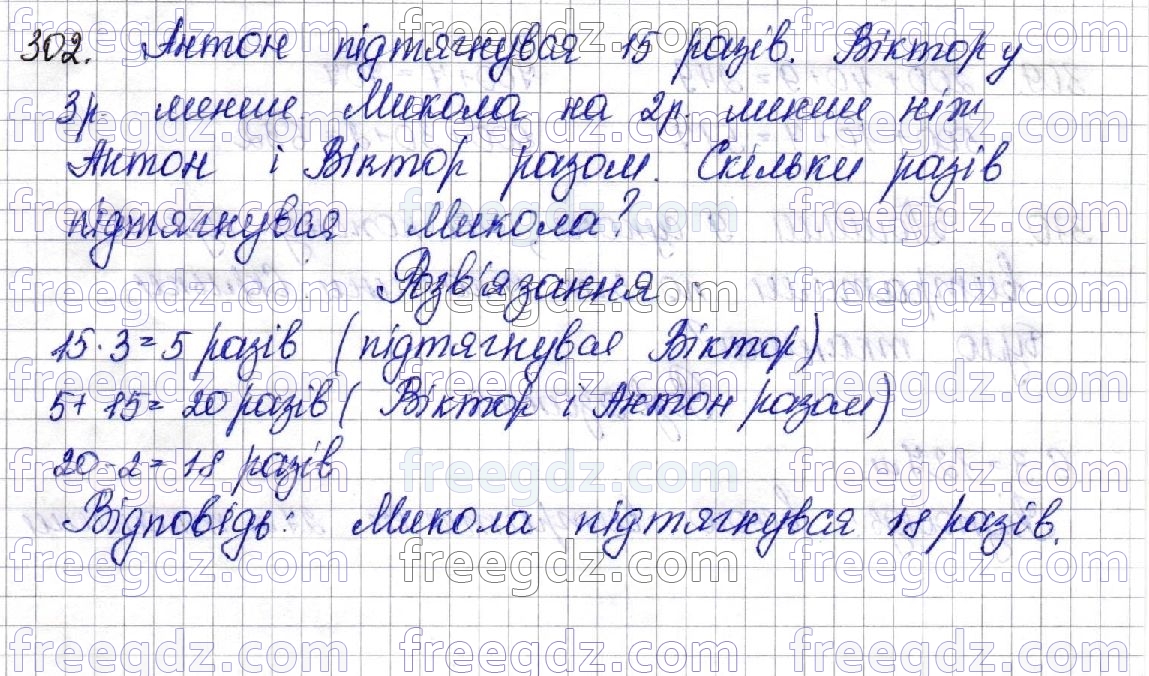 302. Антон підтягнувся 15 разів. Віктор у
3р. менше. Микола на 2р. менше ніж
Антон і Віктор разом. Скільки разів
підтягнувся Микола?
Розв'язання
15 : 3 = 5 разів (підтягнувся Віктор)
5 + 15 = 20 разів (Віктор і Антон разом)
20 - 2 = 18 разів
Відповідь: Микола підтягнувся 18 разів.
freegdz.com